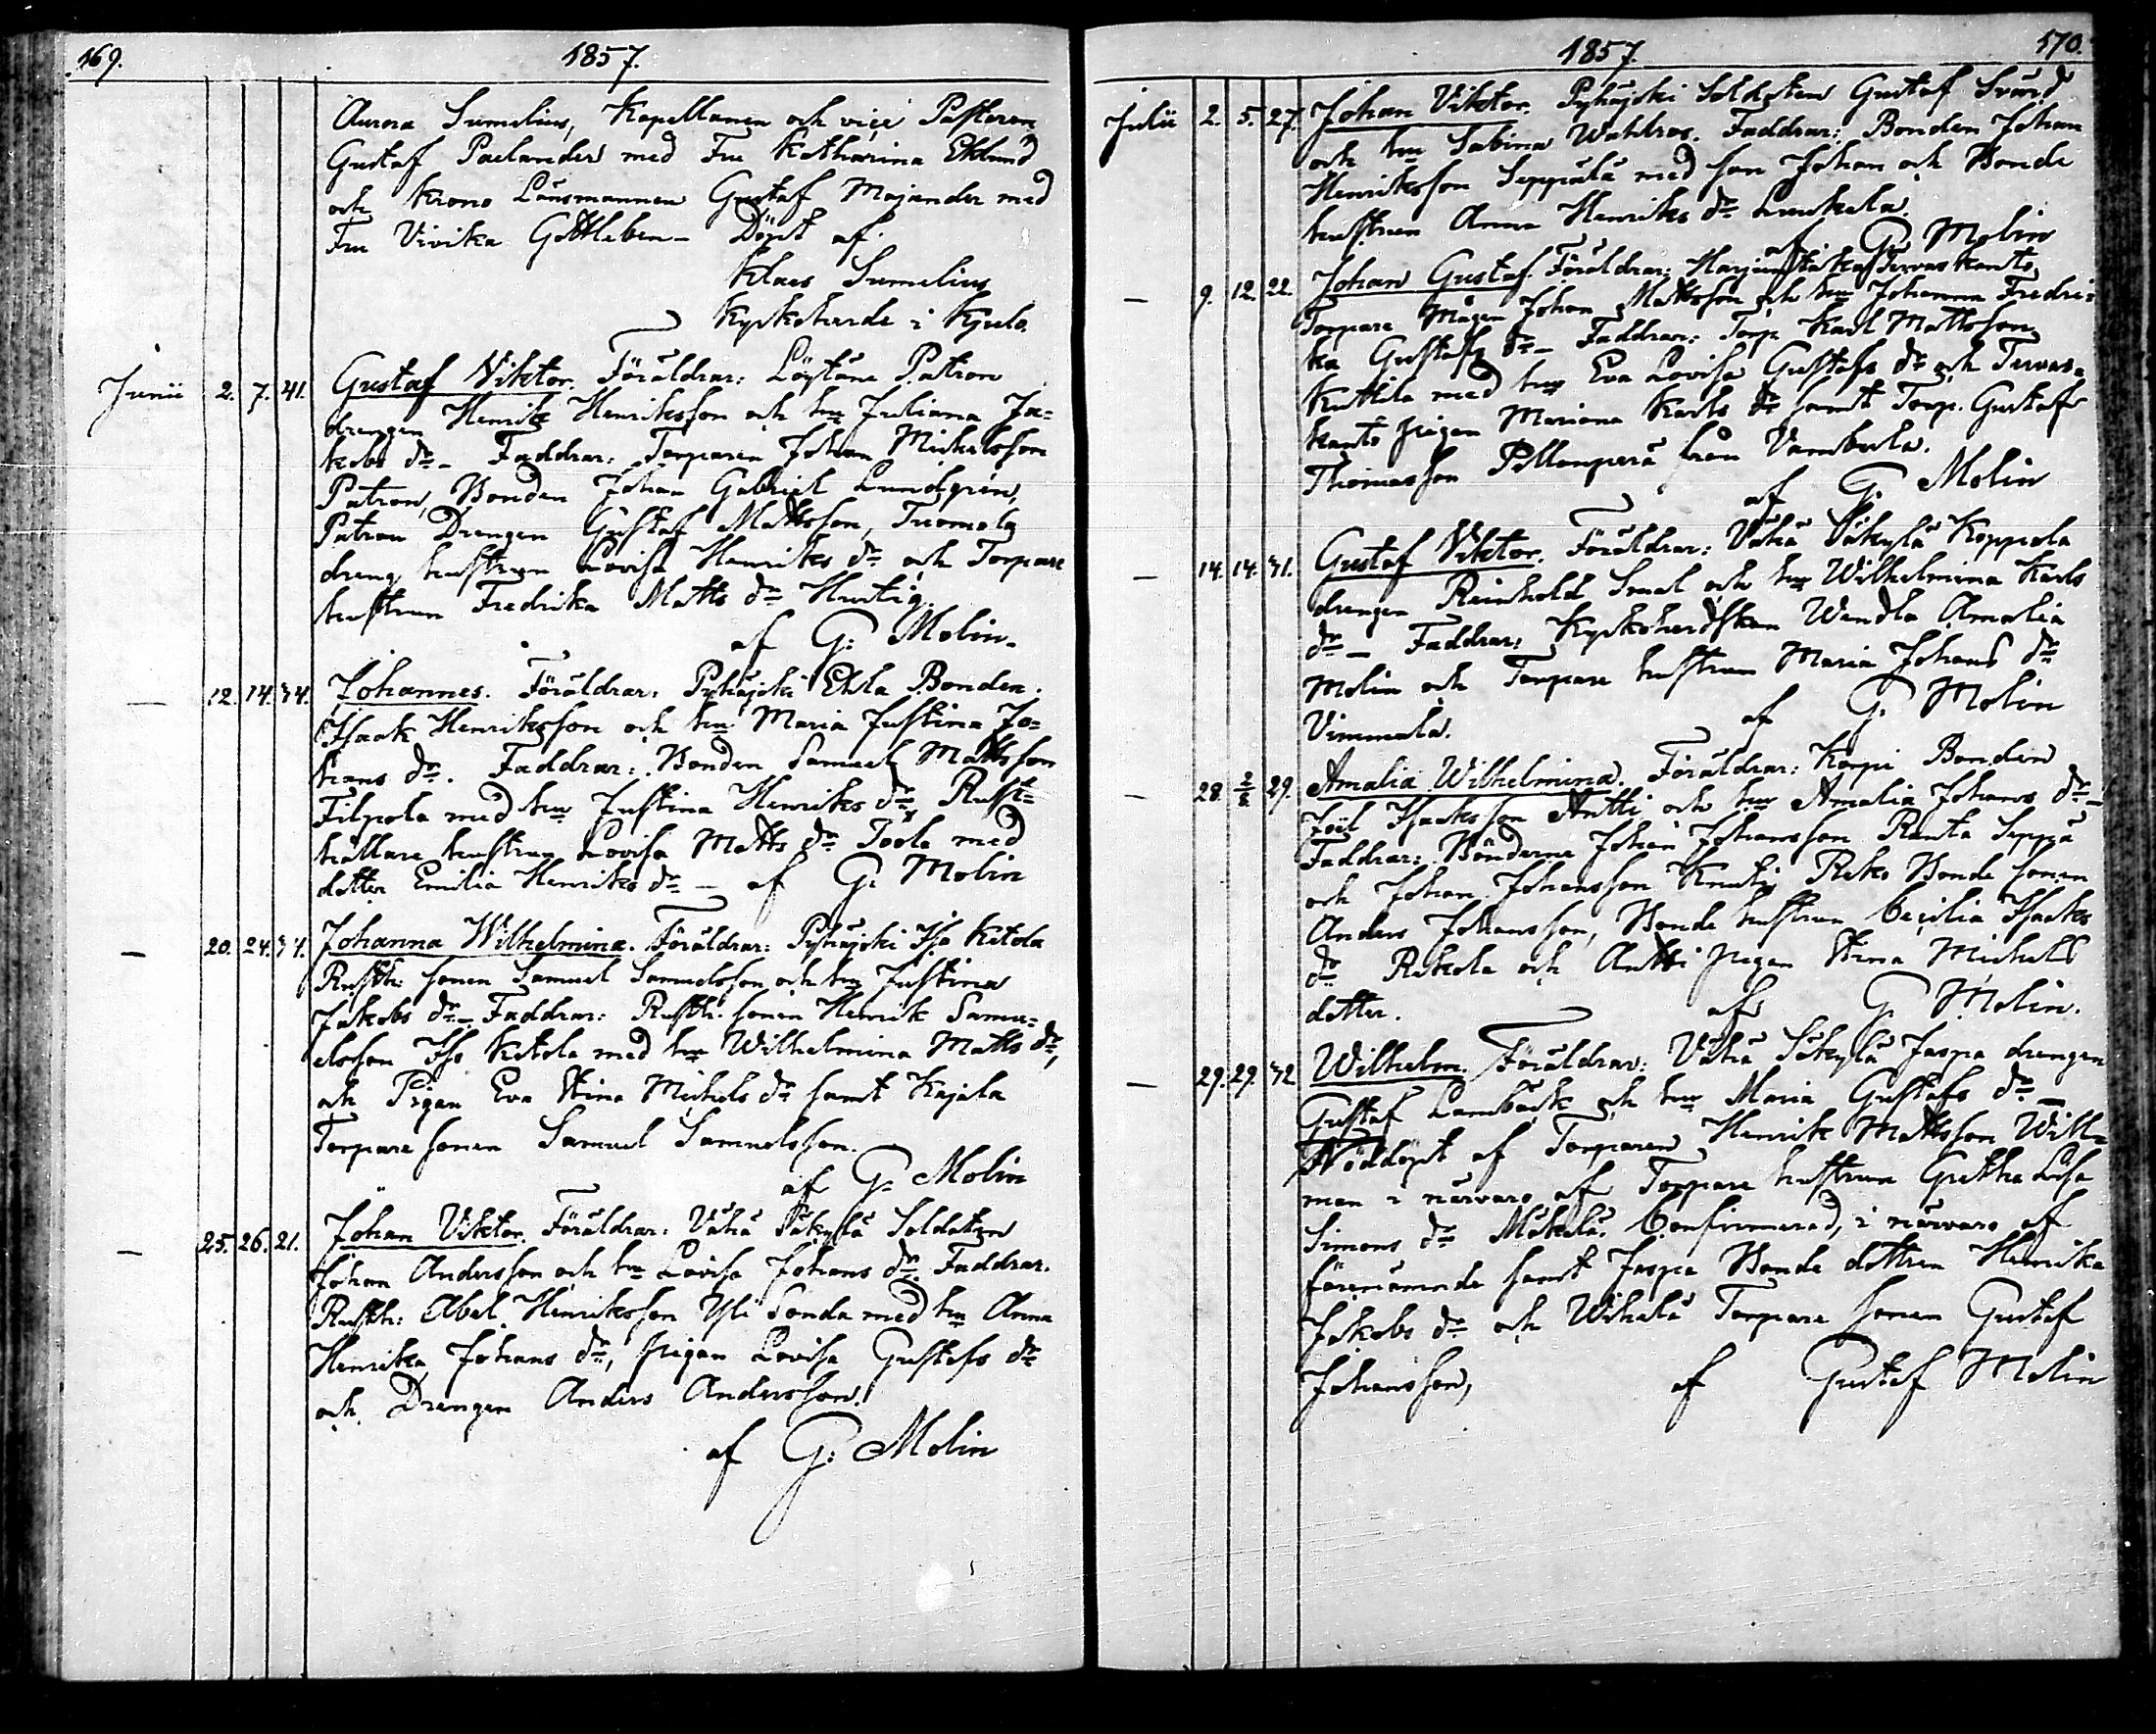 169.
1857.
Aurora Sumelius, Kapellanen och vice Pastorn
Gustaf Paelander med Fru Katharina Eklund
och Krono Länsmannen Gustaf Majander med
Fru Vivika Gottleben - Döpt af
Klaes Sumelius
Kyrkoherde i Kjulo.
Junii 2. 7. 41. Gustaf Viktor. Föräldrar: Löytäne Patron
drengen Henrik Henriksson och hu Juliana Ja=
kobs dr - Faddrar: Torparen Johan Michelsson
Patron, Bonden Johan Gabriel Lundgrén,
Patron Drengen Gustaf Mattsson, Tuomola
dreng hustrun Lovisa Henriks dr och Torpare
hustrun Fredrika Matts dr Hurtig.
af G: Molin.
— 12. 14. 34. Johannes. Föräldrar: Pyhäjoki Ekla Bonden
Isaak Henriksson och hu Maria Justina Jo=
hans dr. Faddrar: Bonden Samuel Mattsson
Filpola med hu Justina Henriks dr, Rust=
hållare hustrun Lovisa Matts dr Joola med
dotter Emilia Henriks dr — af G: Molin
— 20. 24. 34. Johanna Wilhelmina. Föräldrar: Pyhäjoki Iso Ketola
Rusth: sonen Samuel Samuelsson och hu Justina
Jakobs dr - Faddrar: Rusth. sonen Henrik Samu=
elsson Iso Ketola med hu Wilhelmina Matts dr,
och Pigan Eva Stina Michels dr samt Kajala
Torpare sonen Samuel Samuelsson.
af G: Molin
— 25. 26. 21. Johan Viktor. Föräldrar: Vähä Säkylä Soldaten
Johan Andersson och hu Lovisa Johans dr. Faddrar.
Rusth: Abel Henriksson Yli Sonda med hu Anna
Henrika Johans dr, pigan Lovisa Gustafs dr
och Drengen Anders Andersson.
af G: Molin
1857.
170.
Julii 2. 5. 27. Johan Viktor. Pyhäjoki Soldaten Gustaf Svärd
och hu Sabina Wahlros. Faddrar: Bonden Johan
Henriksson Seppälä med son Johan och Bonde
hustrun Anna Henriks dr
af G: Molin
— 9. 12. 22. Johan Gustaf. Föräldrar: Tervaskanto
Torpare Mågen Johan Mattsson och hu Johanna Fredri=
ka Gustafs dr - Faddrar: Torp. Karl Mattsson
Kuttila med hu Eva Lovisa Gustafs dr och Tervas=
kanto pigan Mariana Karls dr samt Torp. Gustaf
Thomasson Pollanperä från Vambula.
af G: Molin
— 14. 14. 31. Gustaf Viktor. Föräldrar: Vähä Säkylä Koppala
drengen Reinhold Smal och hu Wilhelmina Karls
dr — Faddrar: Kyrkoherdskan Wendla Amalia
Molin och Torpare hustrun Maria Johans dr
Vimmala. af G: Molin
— 28. 2/8 29. Amalia Wilhelmina. Föräldrar: Korpi Bonden
Joël Isacksson Antti och hu Amalia Johans dr -
Faddrar: Bönderne Johan Johansson Ranta Seppä
och Johan Johansson Knuti, Reko Bonde sonen
Anders Johansson, Bonde hustrun Cecilia Isacks
dr Rekola och Antti pigan Stina Michels
dotter. af G: Molin.
— 29. 29. 32 Wilhelm. Föräldrar: Vähä Säkylä Jaspa drengen
Gustaf Lambäck och hu Maria Gustafs dr —
Nöddöpt af Torparen Henrik Mattsson Will=
man i närvaro af Torpare hustrun Gretha Lisa
Simons dr Mäkelä. Confirmerad, i närvaro af
förenämnde samt Jaspa Bonde dottren Henrika
Jakobs dr och Wihala Torpare sonen Gustaf
Johansson, af Gustaf Molin